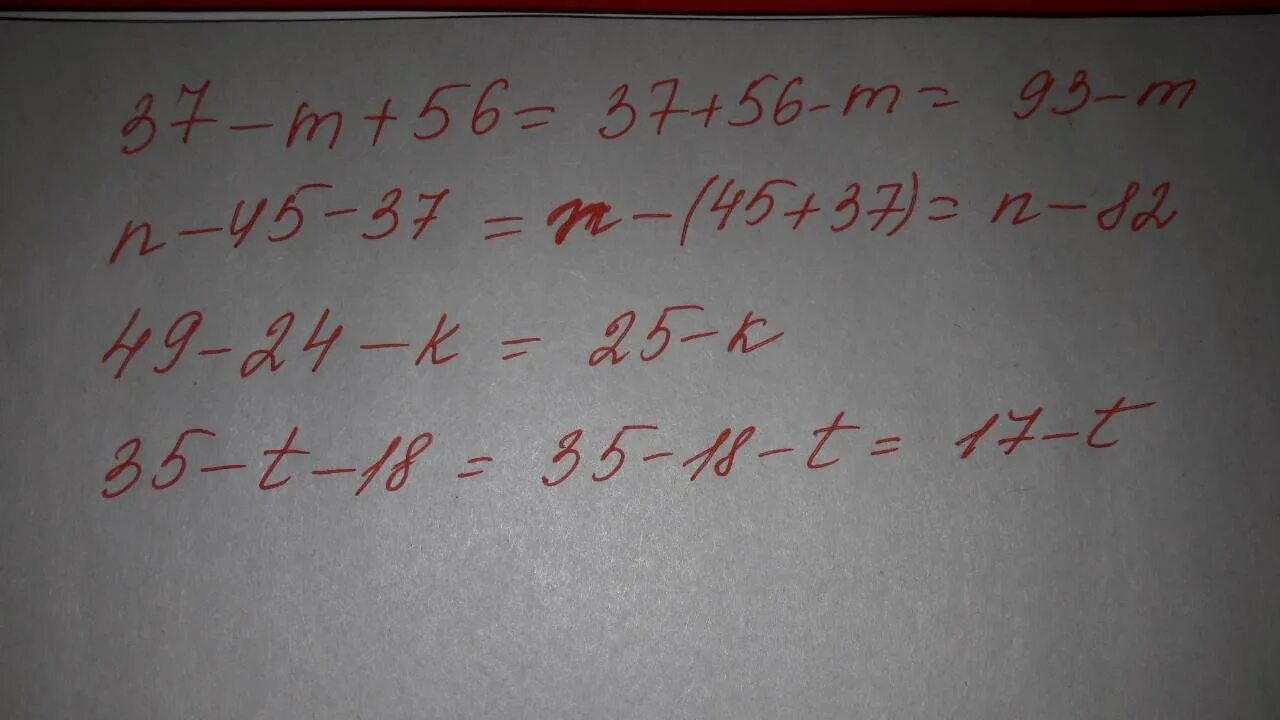 37 - m + 56 = 37 + 56 - m = 93 - m
n - 45 - 37 = n - (45 + 37) = n - 82
49 - 24 - k = 25 - k
35 - t - 18 = 35 - 18 - t = 17 - t